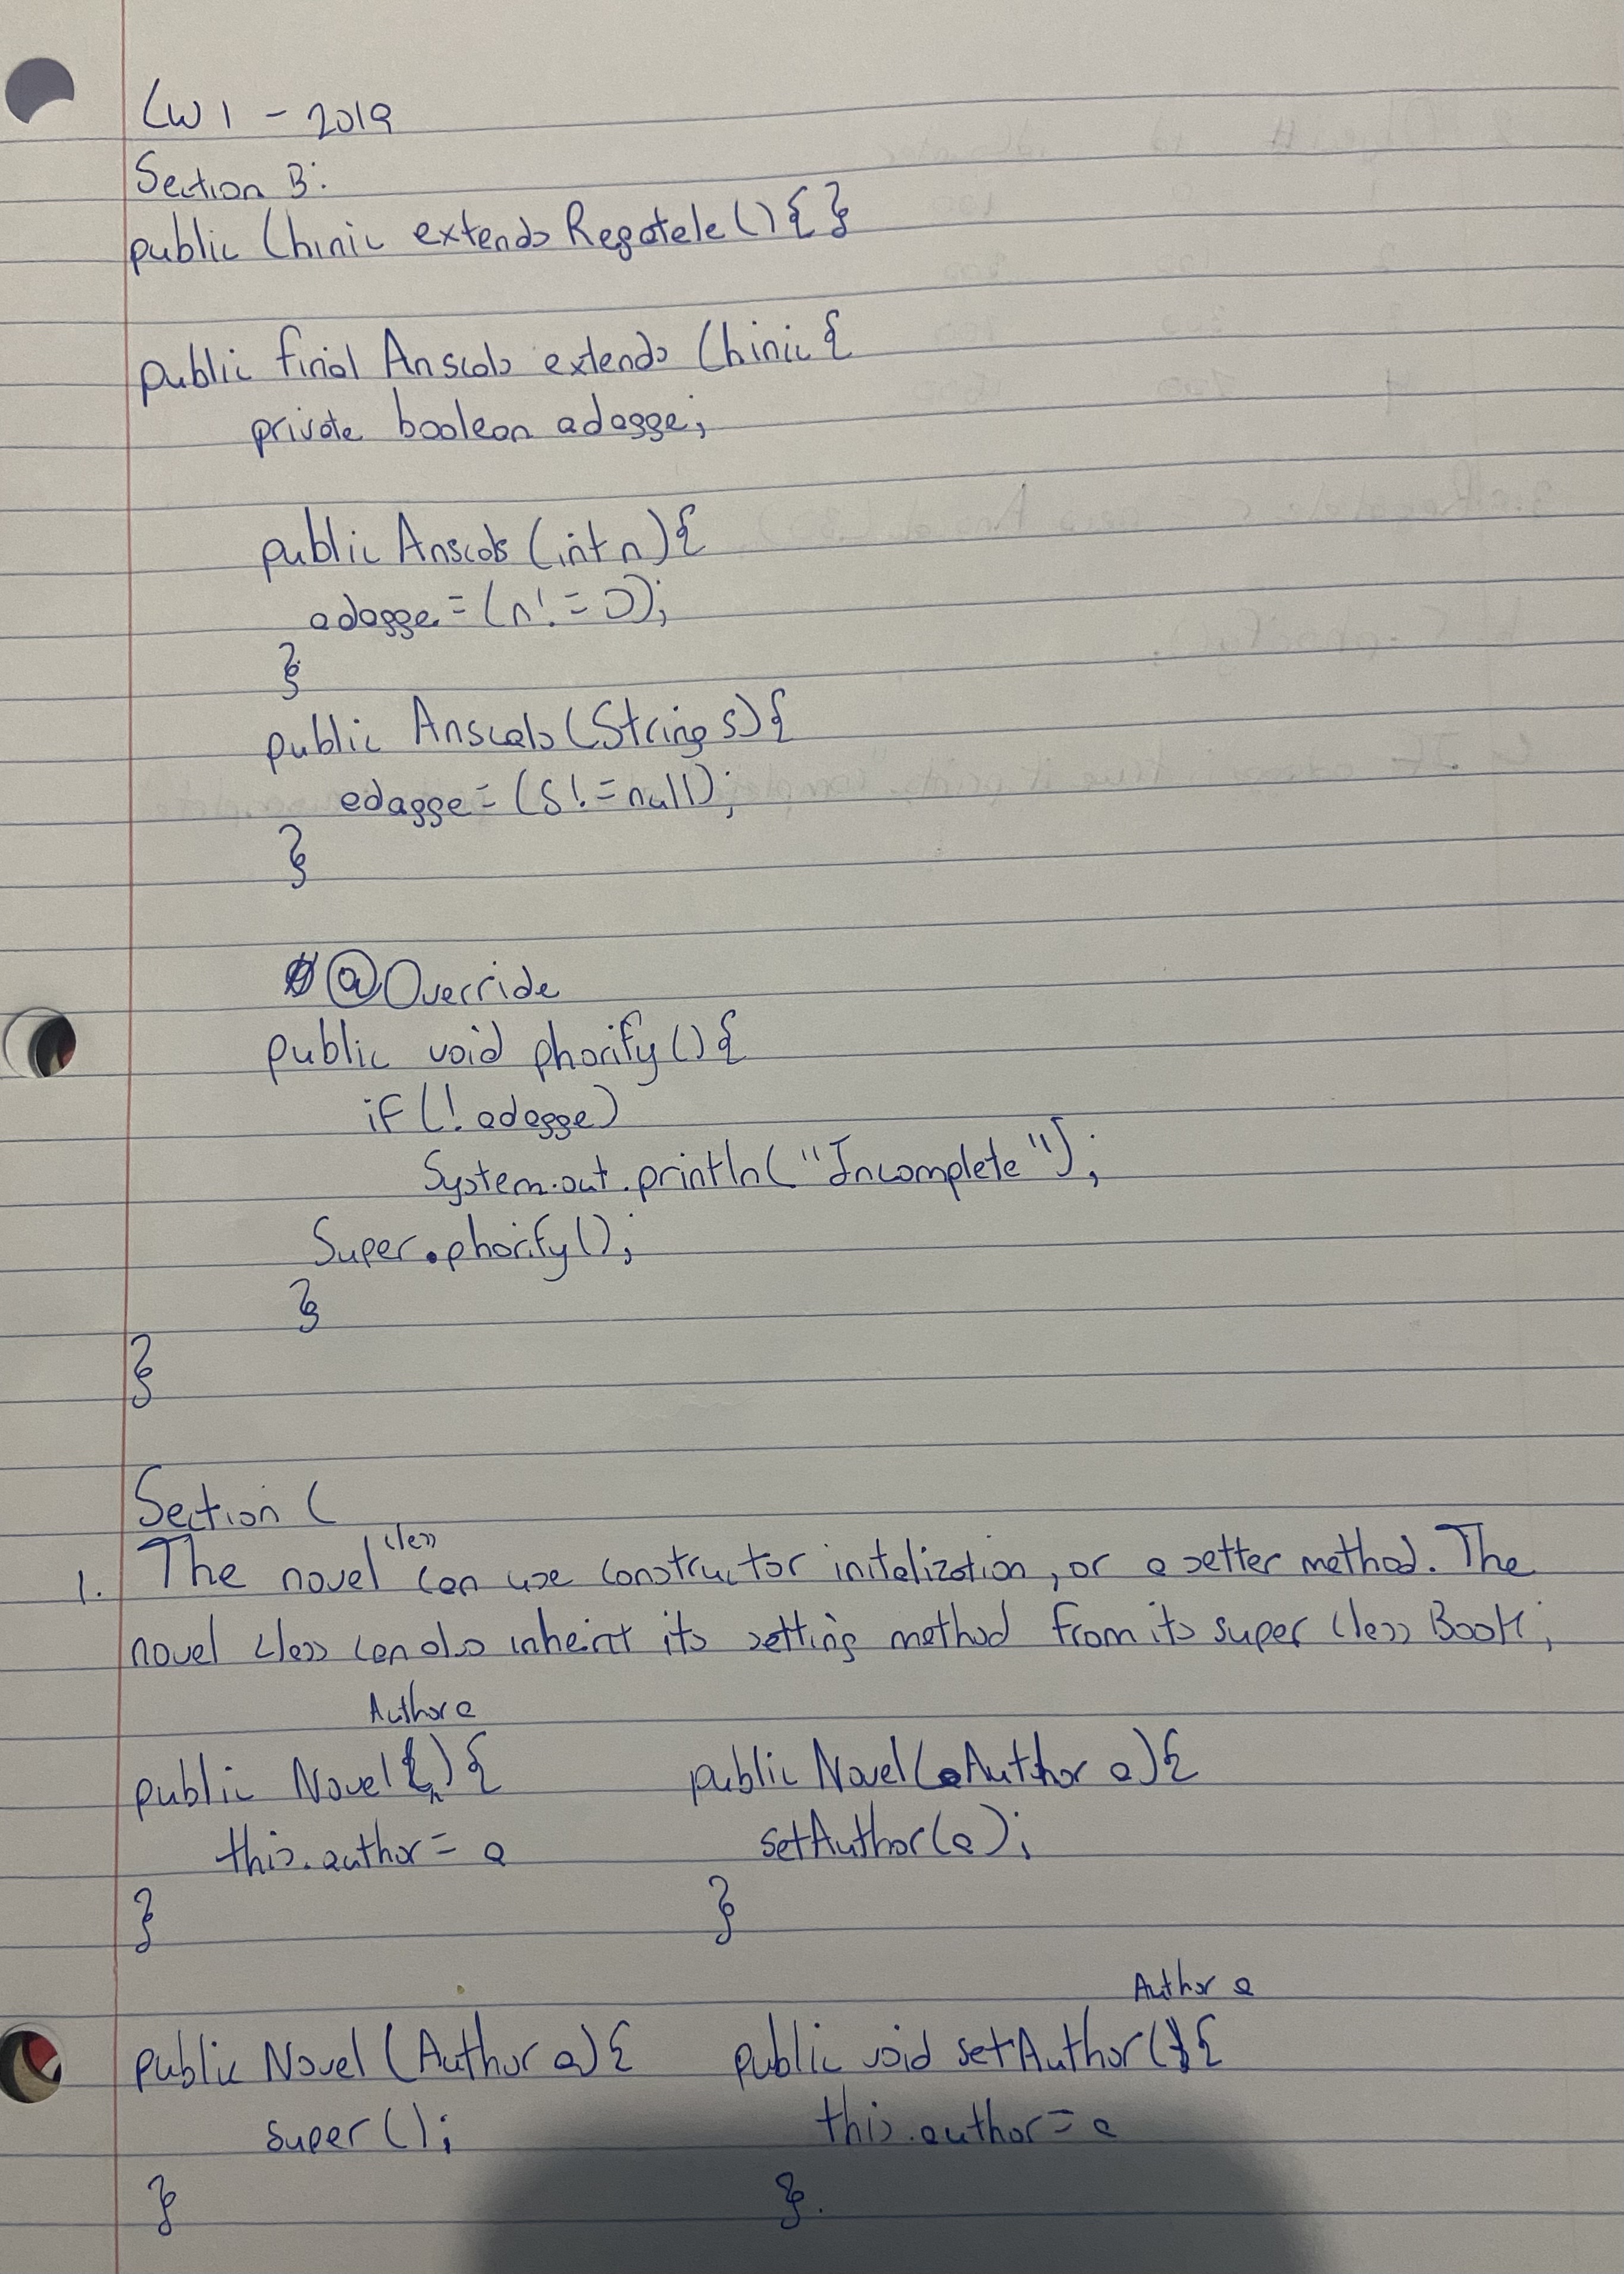 CW1 - 2019
Section B:
public Chinic extends Regatele(){ }
public final Anscols extends Chinic {
private boolean adagge;
public Anscols (int n){
adagge = (n! = 0);
}
public Anscols (String s){
adagge = (s! = null);
}
@Override
public void phorify (){
if (! adagge)
System.out.println("Incomplete");
Super.phorify();
}
}
Section C
1. The novel class can use constructor initalization, or a setter method. The
novel class can also inherit its setting method from its super class Book;
public Novel (Author a) { public Novel (Author a){
this.author = a setAuthor(a);
} }
public Novel (Author a){ public void setAuthor (Author a){
super (); this.author = a
} }.